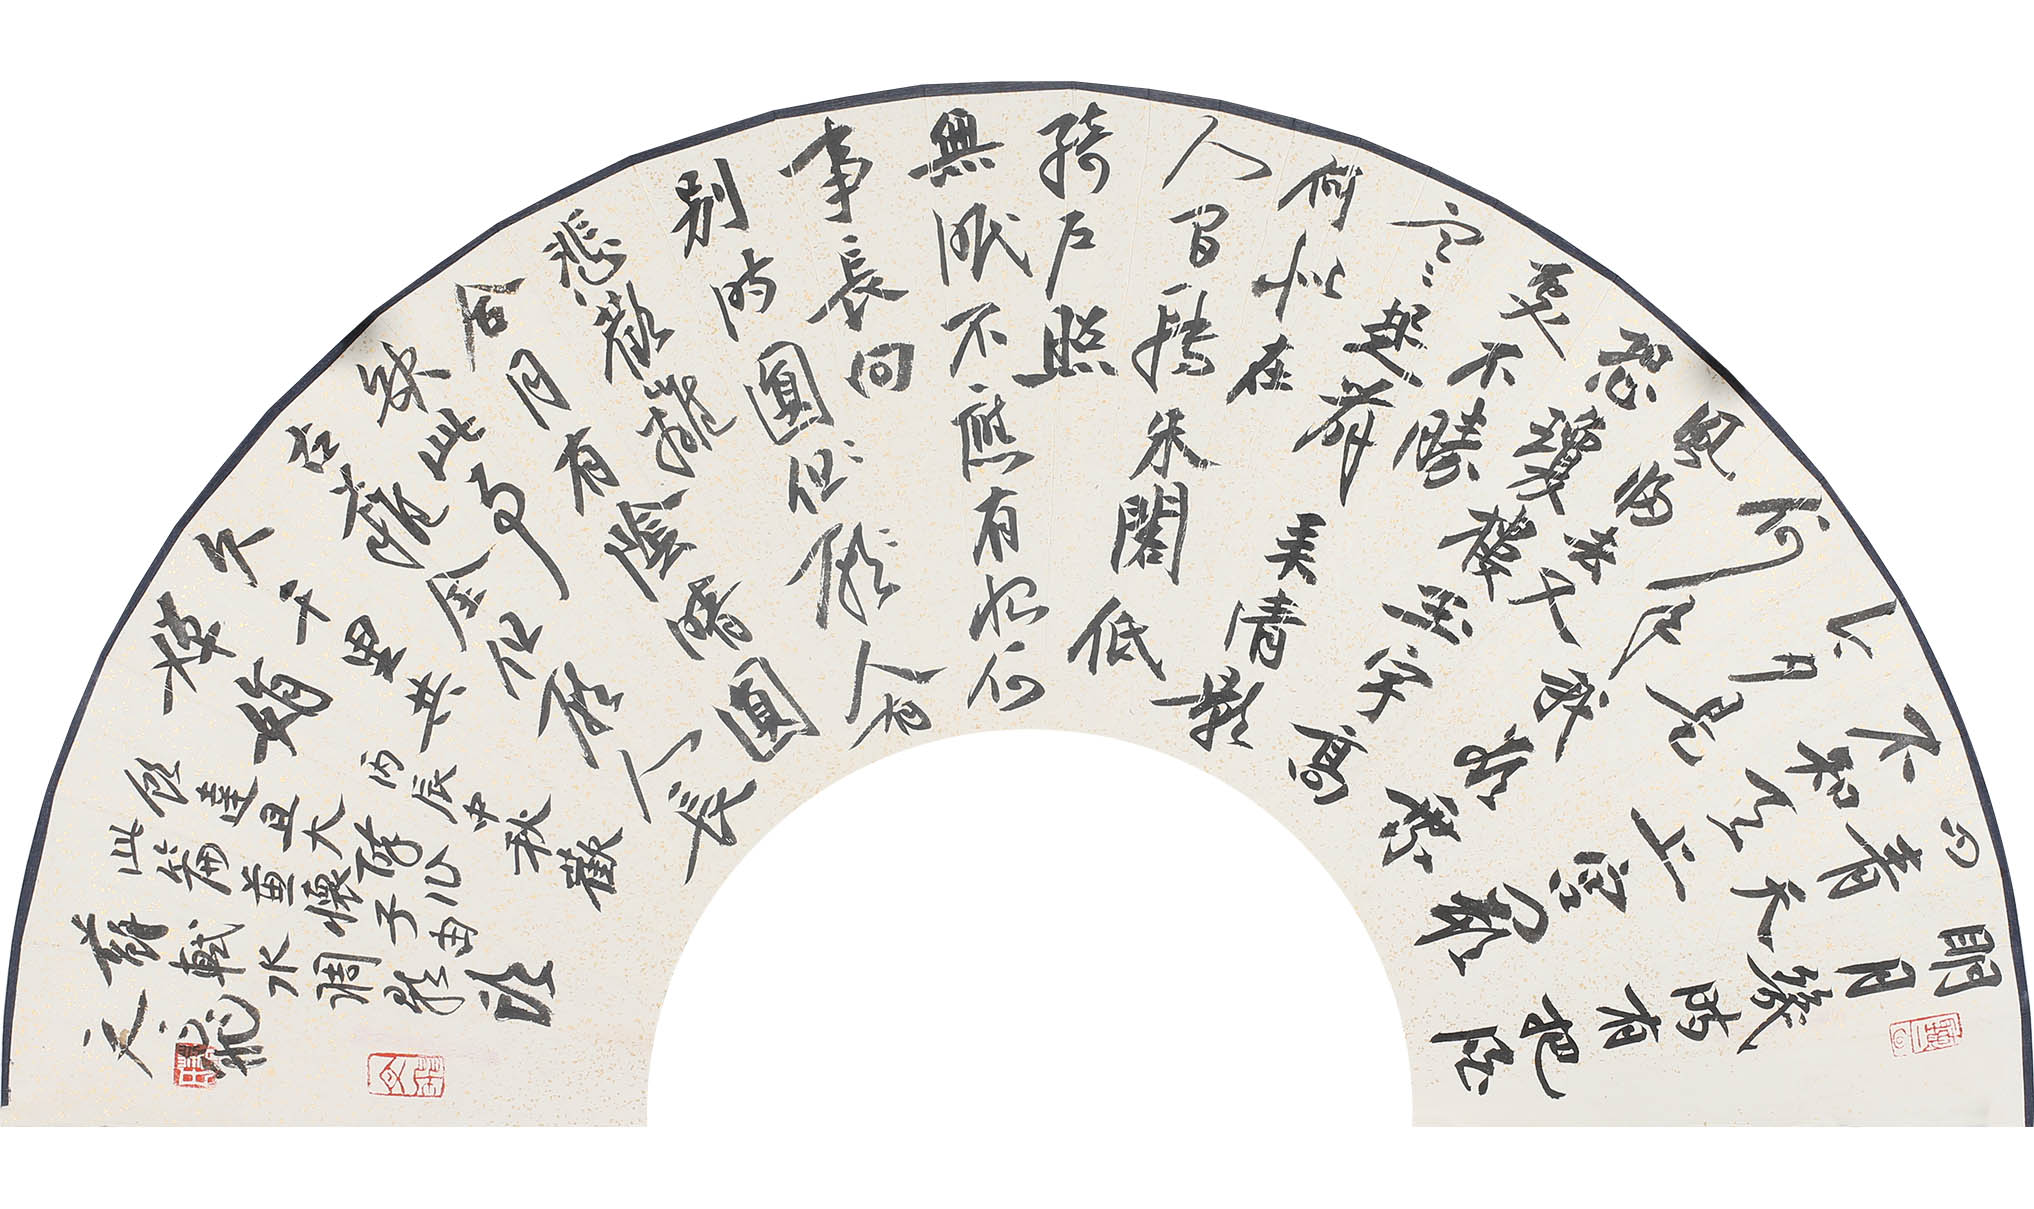 明月幾時有把酒
问青天
不知天上宫闕
今夕是
何年我欲乘
風歸去又
恐瓊樓玉宇高
處不勝
寒起舞弄清影
何似在
人間轉朱閣低
綺戶照
無眠不應有恨何
事長向
别時圓但願人有
悲歡離
合月有陰晴圓
缺此事
古難全但願人長
久千里共
嬋娟
丙辰中秋歡
飲達旦大醉作
此篇兼懷子由
蘇軾水調歌頭
文龍